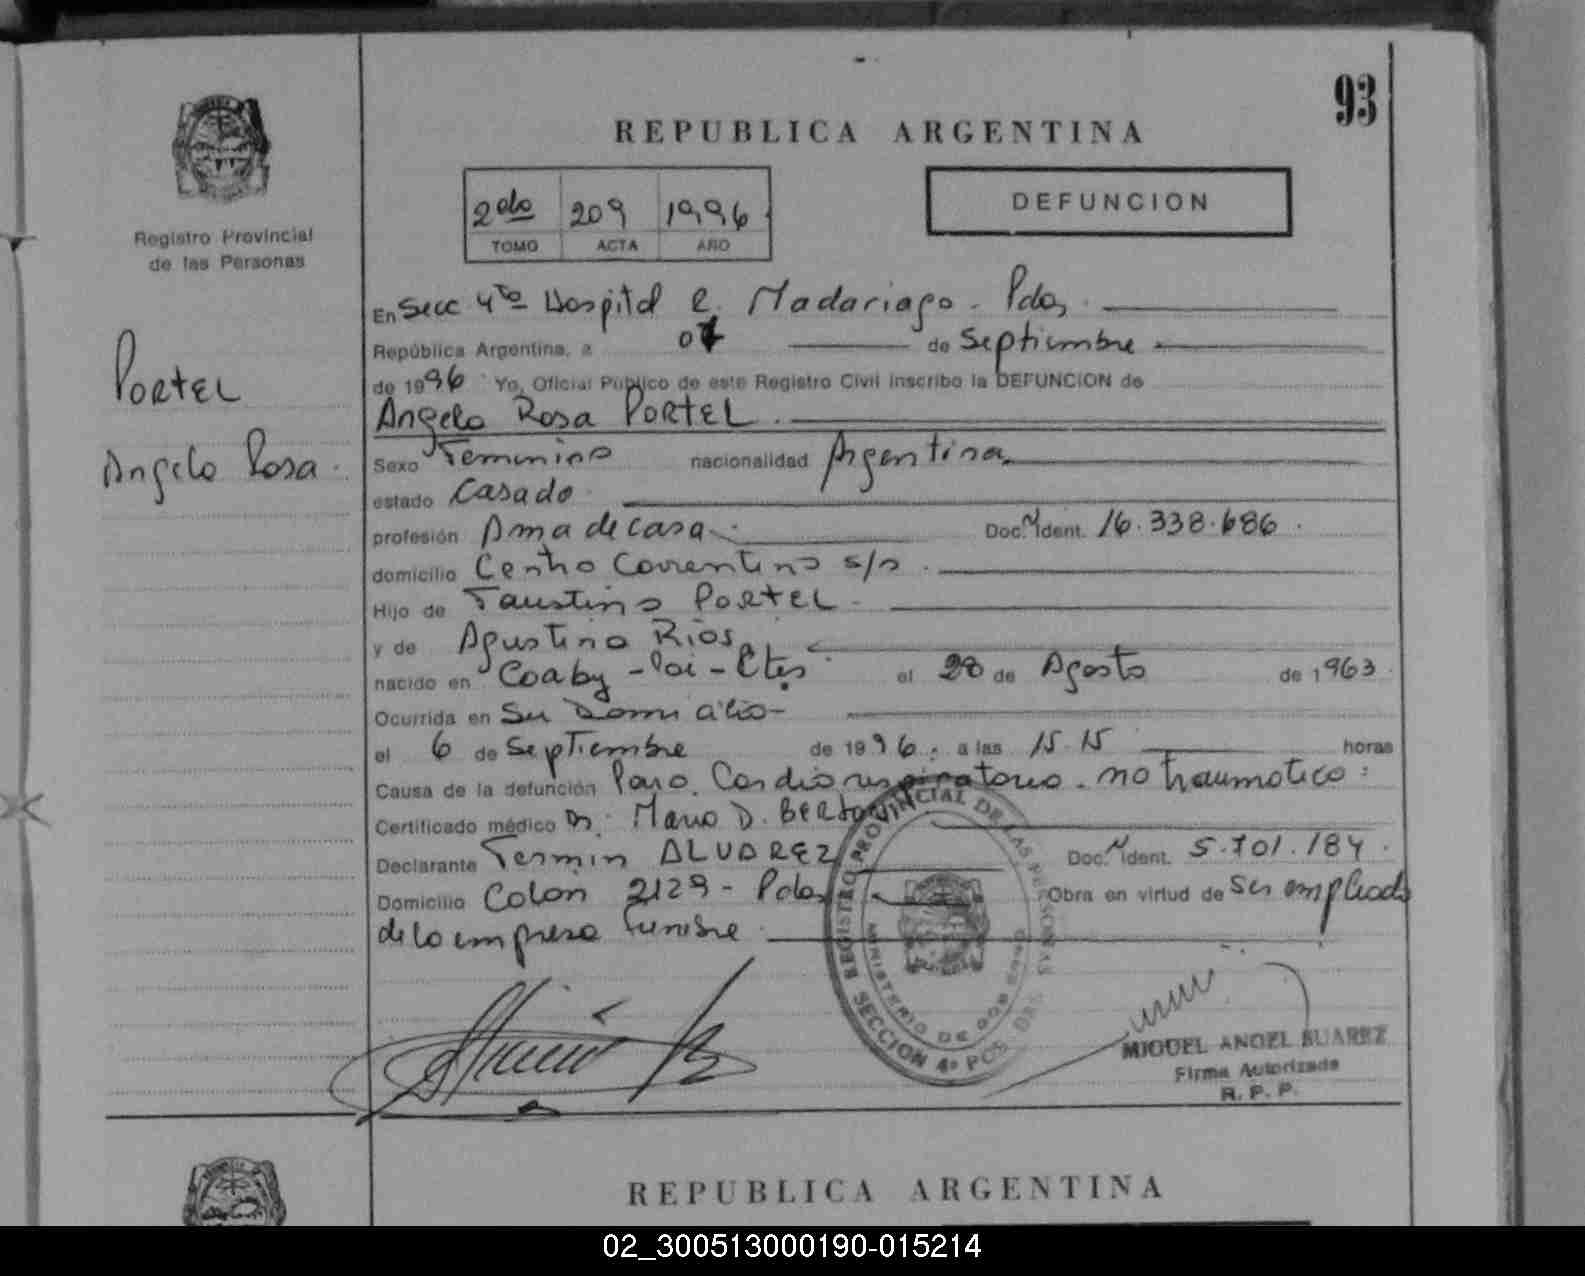 93
REPUBLICA ARGENTINA
2do 209 1996
TOMO ACTA AÑO
DEFUNCION
Registro Provincial
de las Personas
PORTEL
Angela Rosa.
En Secc 4ta Hospital R. Madariaga. Pdas.
República Argentina, a 07 de Septiembre
de 1996 Yo, Oficial Público de este Registro Civil inscribo la DEFUNCION de
Angela Rosa PORTEL.
Sexo Femenino nacionalidad Argentina
estado Casada
profesión Ama de casa. Doc. Ident. 16.338.686.
domicilio Centro Correntino s/n.
Hijo de Faustino PORTEL.
y de Agustina Ríos
nacido en Ctes el 28 de Agosto de 1963
Ocurrida en Su Domicilio-
el 6 de Septiembre de 1996. a las 15.15 horas
Causa de la defunción Paro Cardiorespiratorio. no traumatico.
Certificado médico Dr. Mario D.
Declarante Fermin ALVAREZ Doc. Ident. 5.701.184.
Domicilio Colón 2129 - Pdas Obra en virtud de Ser empleado
de la empresa funebre.
REGISTRO PROVINCIAL DE LAS PERSONAS
MINISTERIO DE GOBIERNO
SECCION 4ª POS
MIGUEL ANGEL SUAREZ
Firma Autorizada
R. P. P.
REPUBLICA ARGENTINA
02_300513000190-015214